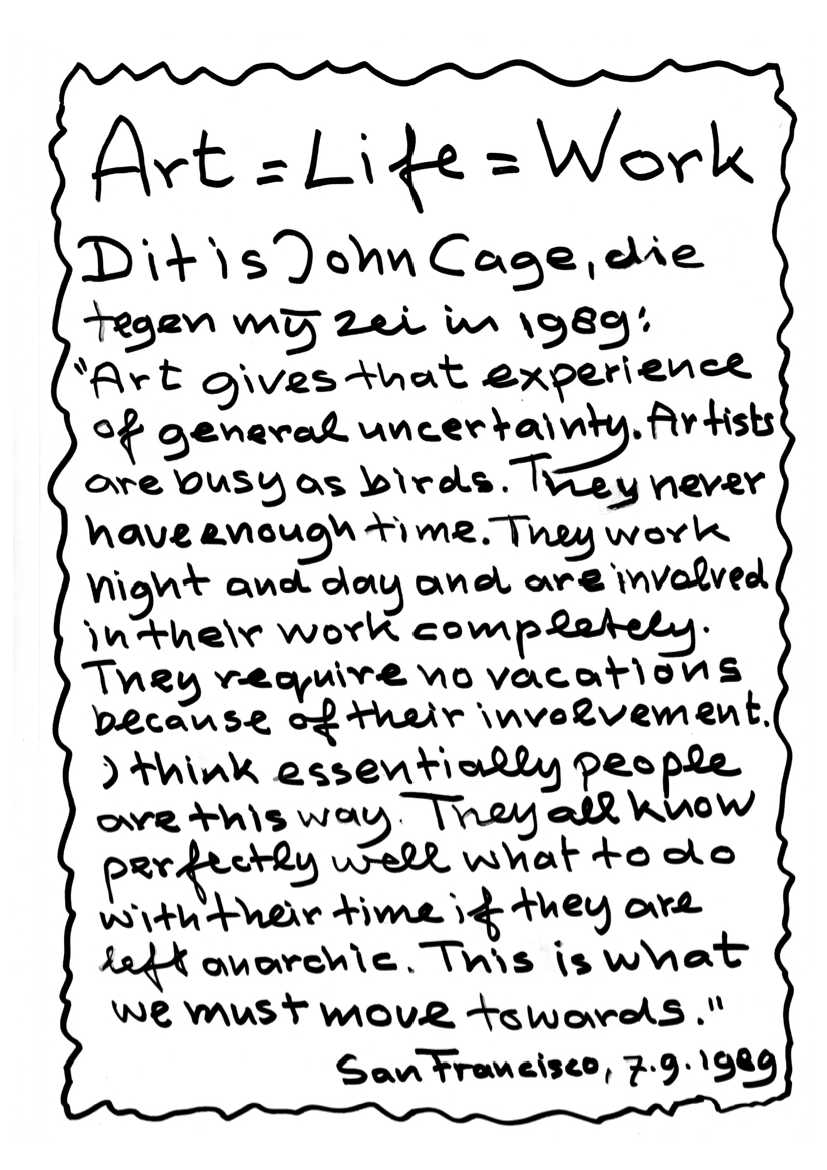 Art = Life = Work
Dit is John Cage, die
tegen mij zei in 1989:
"Art gives that experience
of general uncertainty. Artists
are busy as birds. They never
have enough time. They work
night and day and are involved
in their work completely.
They require no vacations
because of their involvement.
I think essentially people
are this way. They all know
perfectly well what to do
with their time if they are
left anarchic. This is what
we must move towards."
San Francisco, 7.9.1989